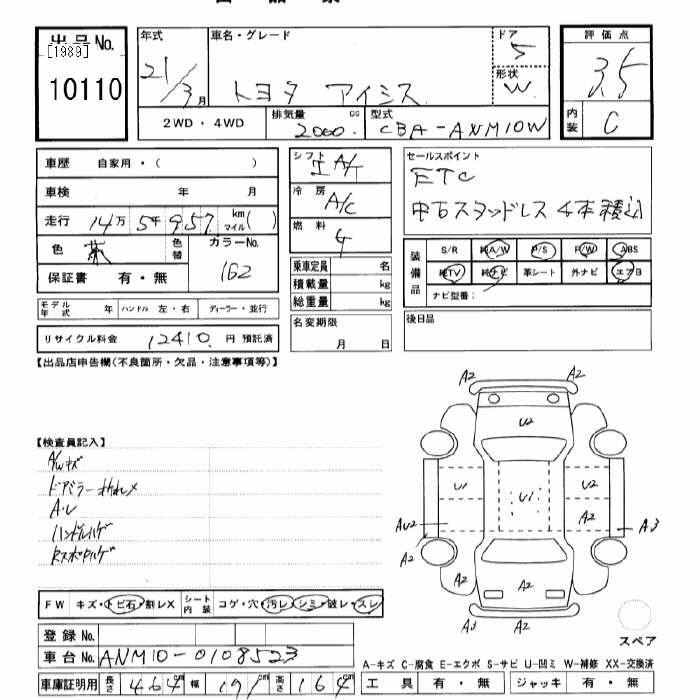 出品No.
[1989]
10110
年式
21/3月
車名・グレード
トヨタ アイシス
ドア
5
形状
W
評価点
3.5
内装
C
2WD・4WD
排気量 2000 cc
型式 CBA-ANM10W
車歴 自家用・( )
車検 年 月
走行 14万5千957 km マイル( )
色 茶 色替
カラーNo. 162
保証書 有・無
シフト I A/T
冷房 A/C
燃料
乗車定員 名
積載量 kg
総重量 kg
セールスポイント
ETC
中古スタッドレス 4本積込
装備品
S/R 純A/W P/S P/W ABS
純TV 純ナビ 革シート 外ナビ エアB
ナビ型番:
モデル年式 年 ハンドル 左・右 ディーラー・並行
リサイクル料金 12410.円 預託済
名変期限
月 日
後日品
【出品店申告欄(不良箇所・欠品・注意事項等)】
【検査員記入】
A/Wキズ
ドアミラーすれメ
A・U
ハンドルハゲ
A2 A2
U2
U1 U1 U2
AU2 A2 A3
A2
A2 A2 A2
A3 A2
スペア
FW キズ・トビ石・割レX
シート内装 コゲ・穴・汚レ・シミ・破レ・スレ
登録No.
車台No. ANM10-0108523
車庫証明用 長さ 464cm 幅 191cm 高さ 164cm
A-キズ C-腐食 E-エクボ S-サビ U-凹ミ W-補修 XX-交換済
工具 有・無 ジャッキ 有・無